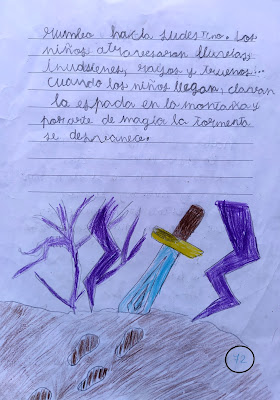 rumbo hacia sudestino. Los
niños atravesaron lluvias
inudsiones, rayos y truenos...
Cuando los niños llegan, clavan
la espada en la montaña y
por arte de magia la tormenta
se desvanece.
12